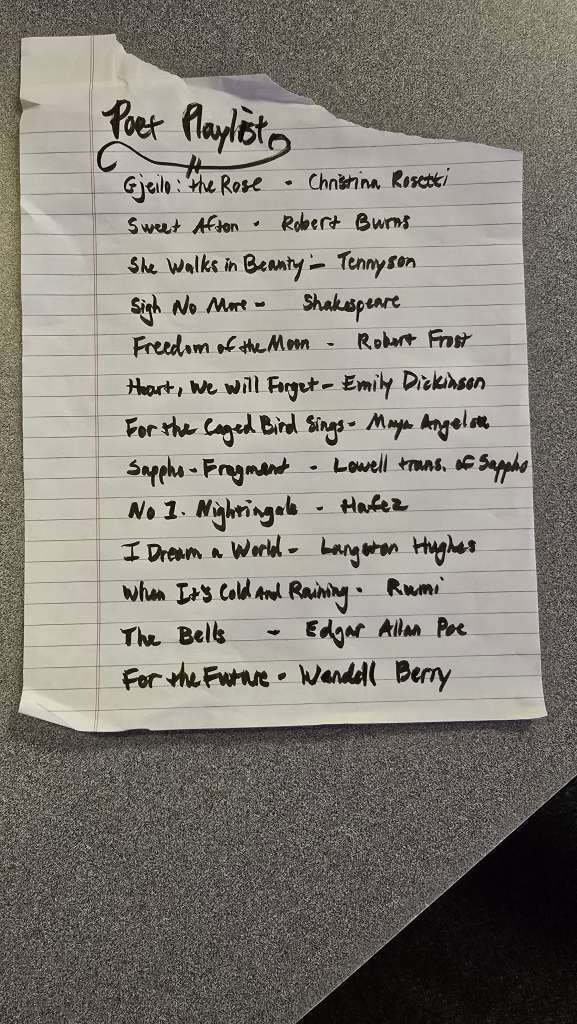 Poet Playlist
Gjeilo: the Rose - Christina Rosetti
Sweet Afton - Robert Burns
She Walks in Beauty - Tennyson
Sigh No More - Shakespeare
Freedom of the Moon - Robert Frost
Heart, We Will Forget - Emily Dickinson
For the Caged Bird Sings - Maya Angelou
Sappho - Fragment - Lowell trans. of Sappho
No 1. Nightingale - Hafez
I Dream a World - Langston Hughes
When It's Cold And Raining - Rumi
The Bells - Edgar Allan Poe
For the Future - Wendell Berry